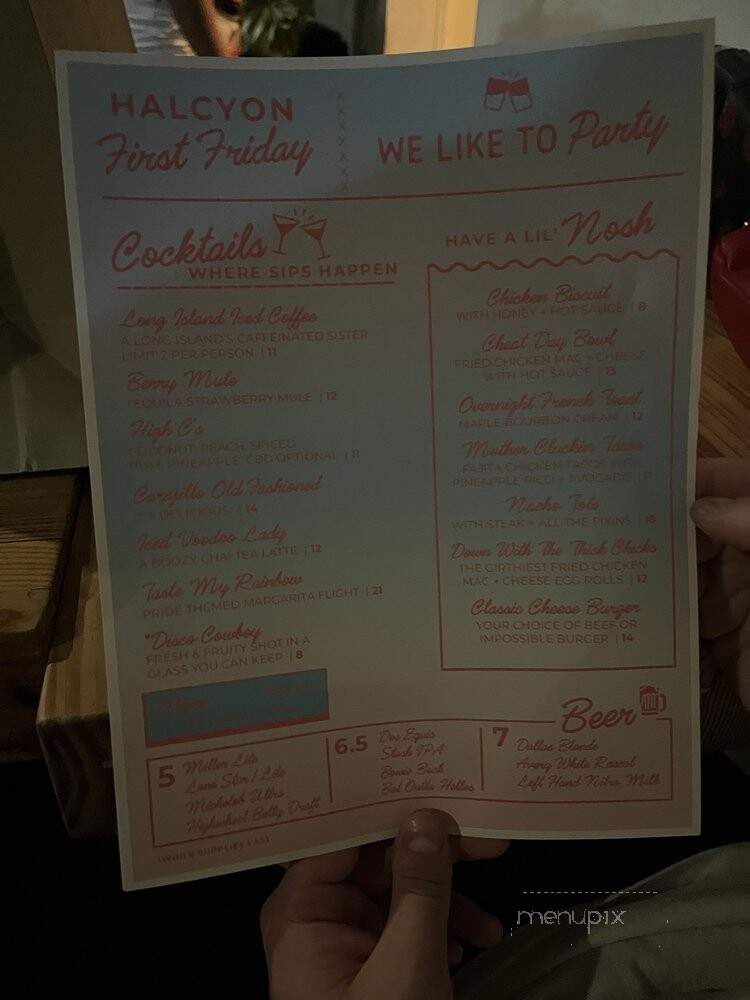 HALCYON
First Friday
WE LIKE TO Party
Cocktails
WHERE SIPS HAPPEN
Long Island Iced Coffee
A LONG ISLAND'S CAFFEINATED SISTER
LIMIT 2 PER PERSON | 11
Berry Mule
TEQUILA STRAWBERRY MULE | 12
High C's
COCONUT, PEACH, SPICED
PINEAPPLE, CBD OPTIONAL | 11
Old Fashioned
DELICIOUS | 14
Iced Voodoo Lady
A BOOZY CHAI TEA LATTE | 12
Taste My Rainbow
PRIDE THEMED MARGARITA FLIGHT | 21
*Disco Cowboy
FRESH & FRUITY SHOT IN A
GLASS YOU CAN KEEP | 8
HAVE A LIL' Nosh
Chicken Biscuit
WITH HONEY + HOT SAUCE | 8
Cheat Day Bowl
FRIED CHICKEN MAC + CHEESE
WITH HOT SAUCE | 13
Overnight French Toast
MAPLE BOURBON CREAM | 12
Mother Cluckin Tacos
FAJITA CHICKEN TACOS WITH
PINEAPPLE PICO + AVOCADO | 11
Nacho Tots
WITH STEAK + ALL THE FIXINS |
Down With The Thick Chicks
THE GIRTHIEST FRIED CHICKEN
MAC + CHEESE EGG ROLLS | 12
Classic Cheese Burger
YOUR CHOICE OF BEEF OR
IMPOSSIBLE BURGER | 14
Beer
5
Miller Lite
Lone Star / Lite
Michelob Ultra
Highwheel Betty Draft
6.5
Dos Equis
Stash IPA
Bowie Bock
Bat Outta Helles
7
Dallas Blonde
Avery White Rascal
Left Hand Nitro Milk
*WHILE SUPPLIES LAST
menupix